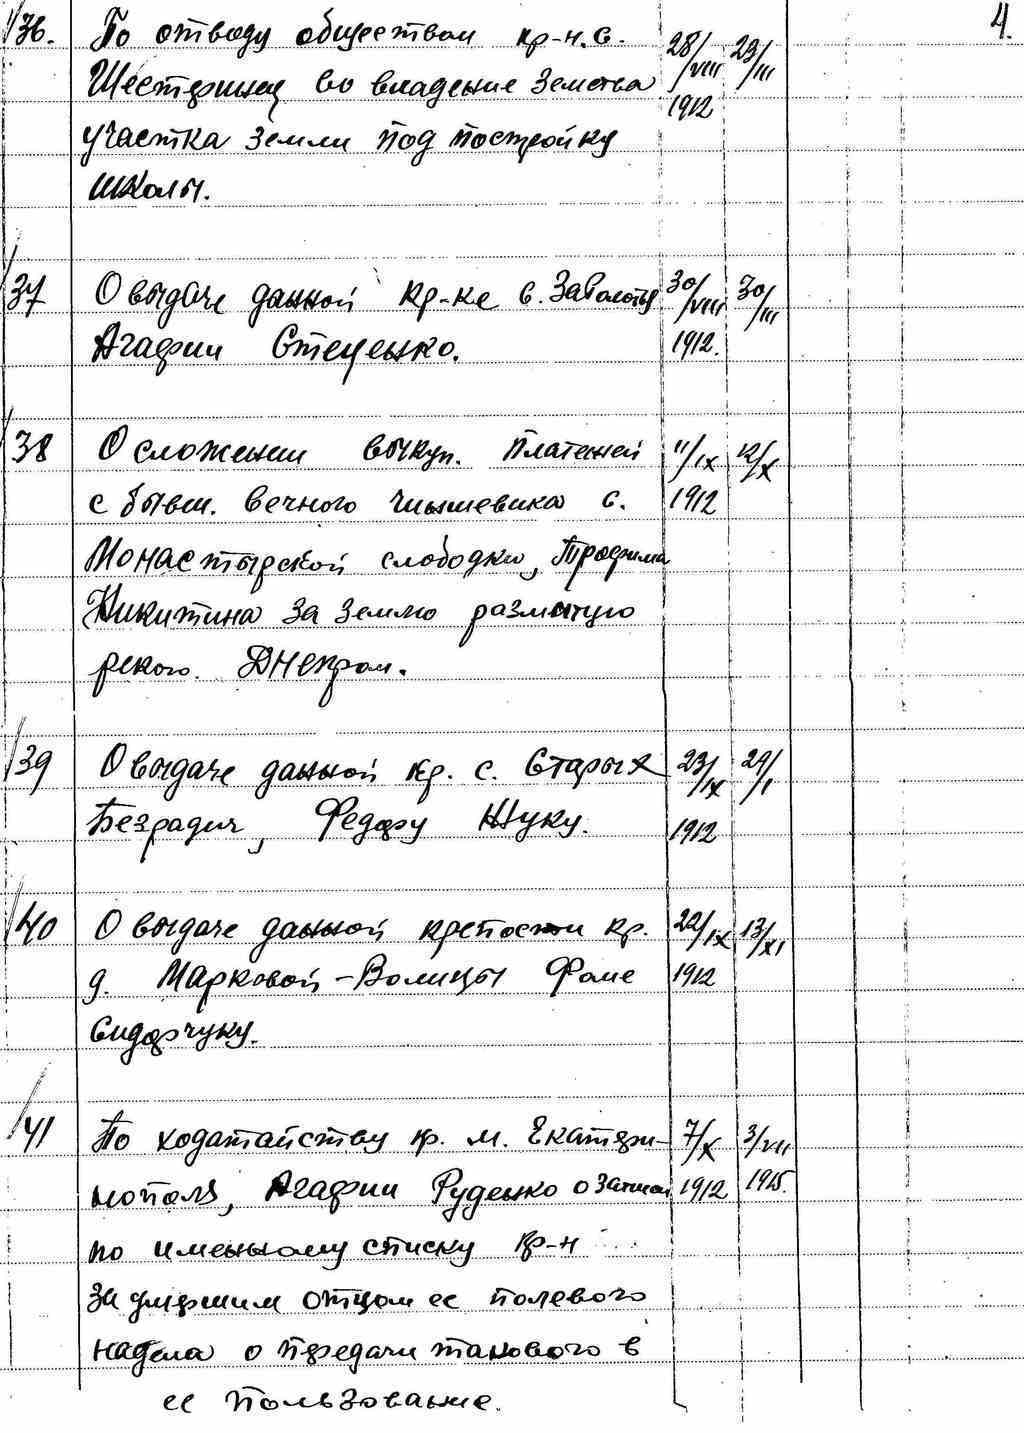 4.
36. По отводу обществом кр-н.с. 28/VIII 29/III
Шестеринец во владение Земства 1912
участка земли под постройку
школы.
37 О выдаче данной кр-ке с. Заболотья 30/VIII 30/III
Агафии Стеценко. 1912.
38 О сложении выкуп. платежей 11/IX 12/X
с бывш. вечного чиншевика с. 1912
Монастырской слободки, Трофима
Никитина за землю размытую
рекого. Днепром.
39 О выдаче данной кр. с. Старых 23/IX 24/I
Безрадич, Федору Жуку. 1912
40 О выдаче данной крепости кр. 22/IX 13/XI
д. Марковой-Волицы Фоме 1912
Сидорчуку.
41 По ходатайству кр. м. Екатери- 7/X 3/VII
нополя, Агафии Руденко о записи 1912 1915.
по именному списку кр-н
за умершим отцом ее полевого
надела о передачи такового в
ее пользование.